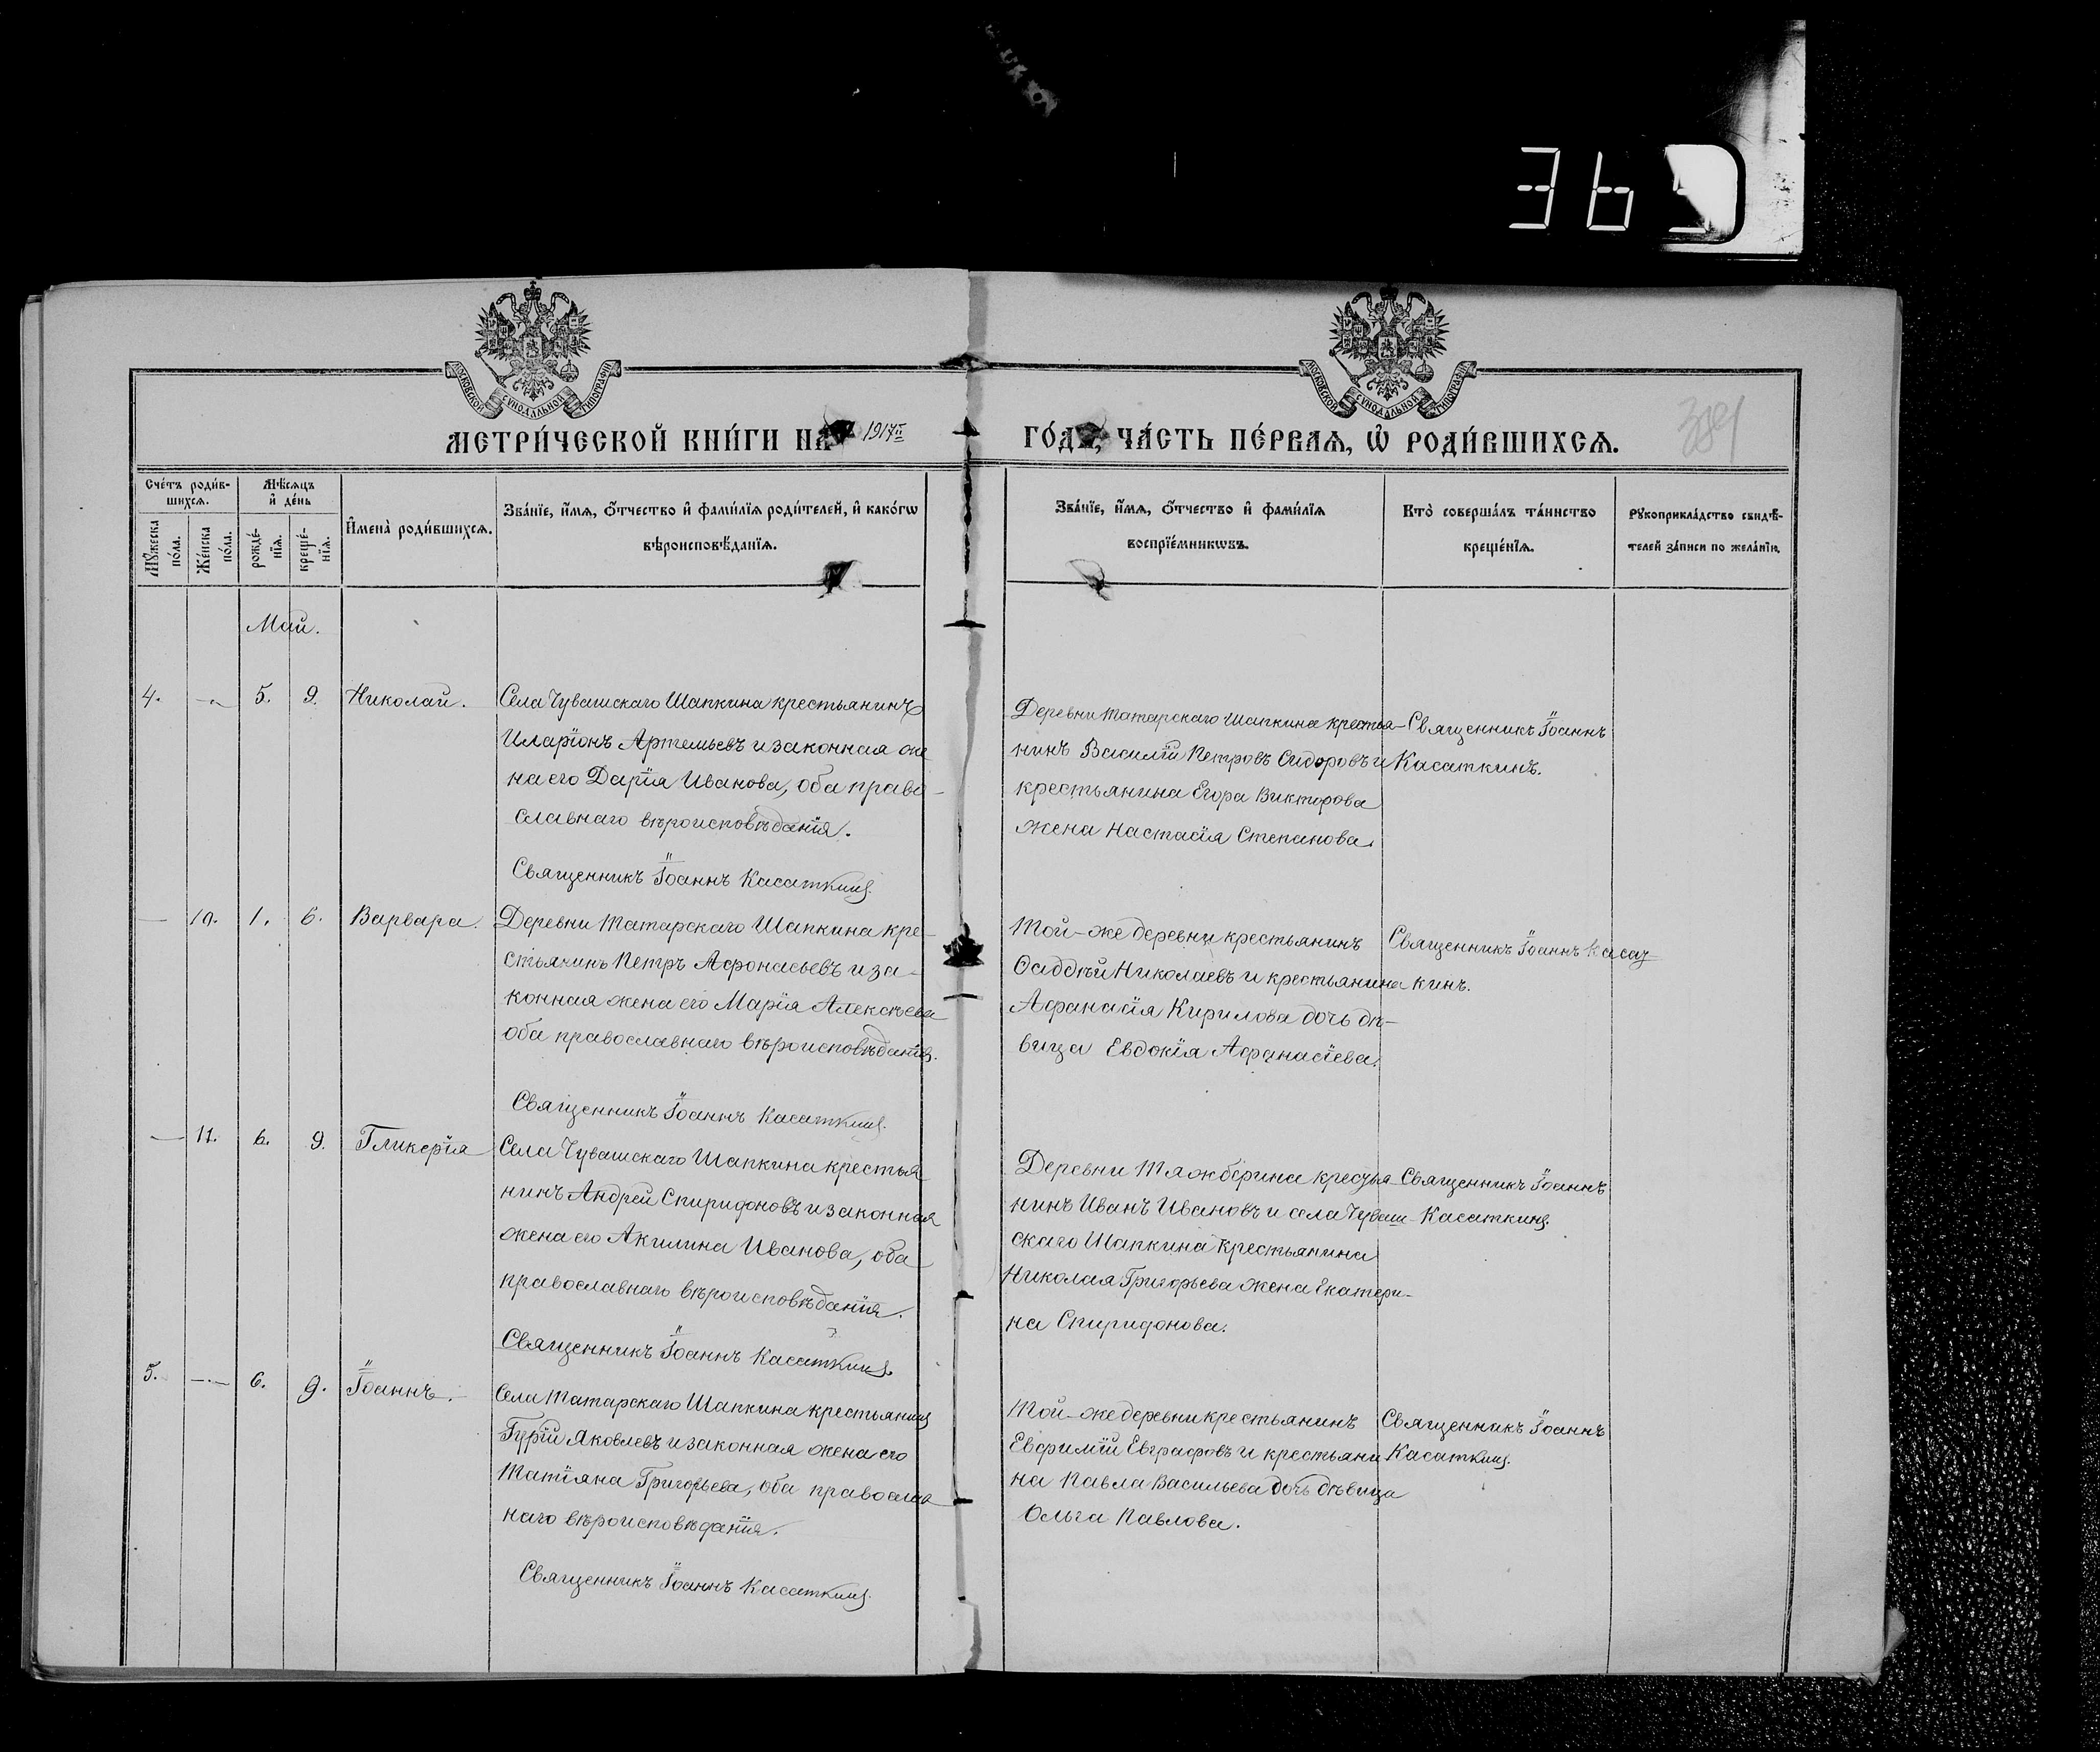 365
МОСКОВСКОЙ СѴНОДАЛЬНОЙ ТИПОГРАФІИ
МОСКОВСКОЙ СѴНОДАЛЬНОЙ ТИПОГРАФІИ
МЕТРИ́ЧЕСКОЙ КНИ́ГИ НА 1917 ГО́ДЪ, ЧА́СТЬ ПЕ́РВАѦ, Ѽ РОДИ́ВШИХСѦ.
Сче́тъ роди́в-
шихсѧ.
Мѣ́сѧцъ
и҆ де́нь
Мꙋ́жеска
по́ла.
Же́нска
по́ла.
рожде́-
нїѧ.
креще́-
нїѧ.
И҆мена̀ роди́вшихсѧ.
Зва́нїе, и҆́мѧ, ѻ҆́тчество и҆ фами́лїѧ роди́телей, и҆ како́гѡ
вѣроисповѣ́данїѧ.
Зва́нїе, и҆́мѧ, ѻ҆́тчество и҆ фами́лїѧ
воспрїе́мникѡвъ.
Кто̀ соверша́лъ та́инство
креще́нїѧ.
Рꙋкоприкла́дство свидѣ́-
телей за́писи по жела́нїю.
Май.
4. — 5. 9. Николай.
Села Чувашскаго Шапкина крестьянинъ
Иларіонъ Артемьевъ и законная же
на его Дарія Иванова, оба право-
славнаго вѣроисповѣданія.
Священникъ Іоаннъ Касаткинъ.
Деревни Татарскаго Шапкина крестья-
нинъ Василій Петровъ Сидоровъ и
крестьянина Егора Викторова
жена Настасія Степанова.
Священникъ Іоаннъ
Касаткинъ.
— 10. 1. 6. Варвара.
Деревни Татарскаго Шапкина кре-
стьянинъ Петръ Афонасьевъ и за-
конная жена его Марія Алексѣева
оба православнаго вѣроисповѣданія.
Священникъ Іоаннъ Касаткинъ.
Той-же деревни крестьянинъ
Фаддѣй Николаевъ и крестьянина
Афанасія Кирилова дочь дѣ-
вица Евдокія Афанасіева.
Священникъ Іоаннъ Касат-
кинъ.
— 11. 6. 9. Гликерія
Села Чувашскаго Шапкина крестья
нинъ Андрей Спиридоновъ и законная
жена его Акилина Иванова, оба
православнаго вѣроисповѣданія.
Священникъ Іоаннъ Касаткинъ.
Деревни Тяжберина крестья-
нинъ Иванъ Ивановъ и села Чуваш-
скаго Шапкина крестьянина
Николая Григорьева жена Екатери-
на Спиридонова.
Священникъ Іоаннъ
Касаткинъ.
5. — 6. 9. Іоаннъ.
Села Татарскаго Шапкина крестьянинъ
Гурій Яковлевъ и законная жена его
Татіяна Григорьева, оба православ
наго вѣроисповѣданія.
Священникъ Іоаннъ Касаткинъ.
Той-же деревни крестьянинъ
Евфимій Евграфовъ и крестьяни
на Павла Васильева дочь дѣвица
Ольга Павлова.
Священникъ Іоаннъ
Касаткинъ.